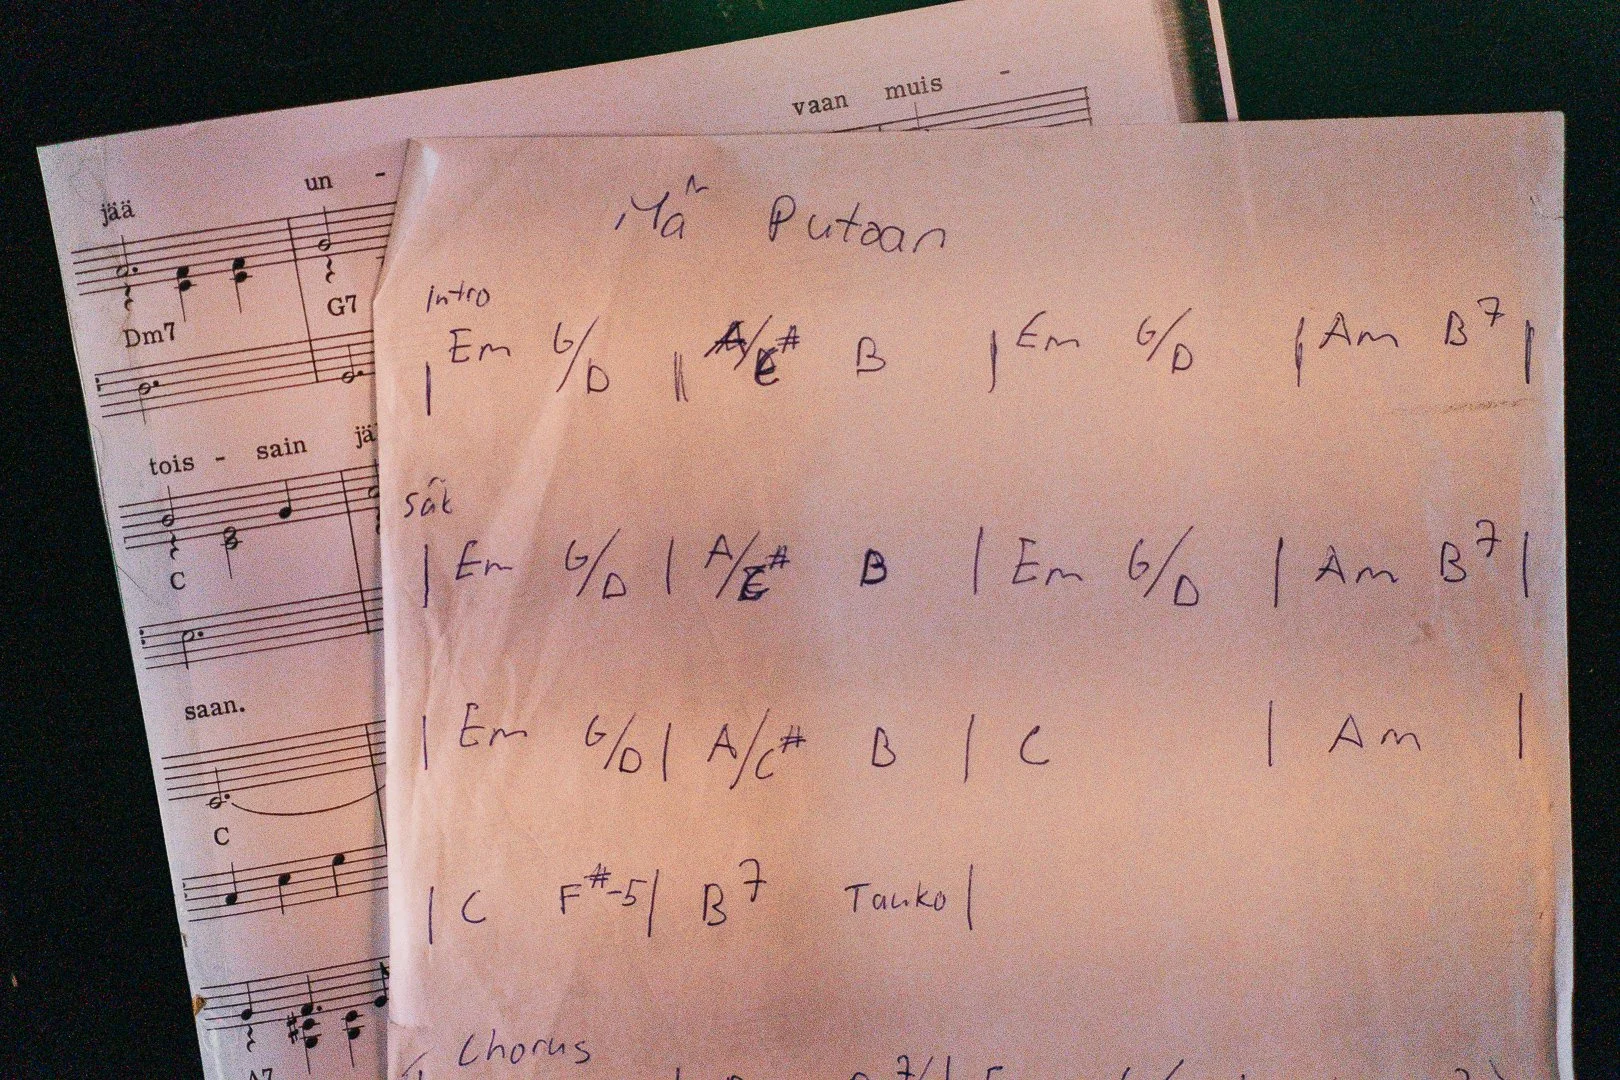 vaan muis -
jää un -
Dm7 G7
tois - sain
C
saan.
C
A7
Mä Putoan
Intro
| Em G/D | A/C# B | Em G/D | Am B7 |
Säk
| Em G/D | A/C# B | Em G/D | Am B7 |
| Em G/D | A/C# B | C | Am |
| C F#-5 | B7 Tauko |
Chorus